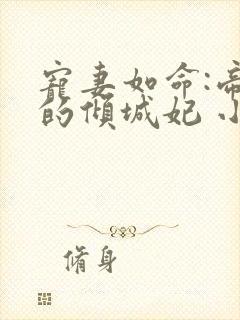 寵妻如命:帝
的傾城妃 小
脩身